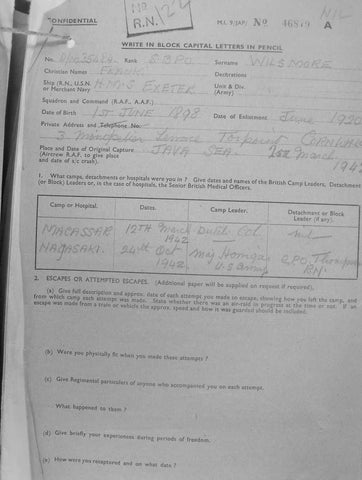 CONFIDENTIAL
R.N. 124
M.I. 9/JAP/ No 46879 NIL
A
WRITE IN BLOCK CAPITAL LETTERS IN PENCIL
No. Rank S.B.P.O. Surname WILSMORE
Christian Names FRANK Decorations
Ship (R.N., U.S.N. or Merchant Navy) H.M.S EXETER Unit & Div. (Army)
Squadron and Command (R.A.F., A.A.F.)
Date of Birth 1ST JUNE 1898 Date of Enlistment June 1920
Private Address and Telephone No.
3 Terrace Torpoint CORNWALL
Place and Date of Original Capture JAVA SEA. 1st March 1942
(Aircrew R.A.F. to give place
and date of a/c crash).
1. What camps, detachments or hospitals were you in ? Give dates and names of the British Camp Leaders, Detachment
(or Block) Leaders or, in the case of hospitals, the Senior British Medical Officers.
Camp or Hospital. Dates. Camp Leader. Detachment or Block
Leader (if any).
MACASSAR 12TH March 1942 Dutch Col nil
NAGASAKI. 24th Oct 1942. Maj Horrigan U.S army C.P.O. Thompson RN.
2. ESCAPES OR ATTEMPTED ESCAPES. (Additional paper will be supplied on request if required).
(a) Give full description and approx. date of each attempt you made to escape, showing how you left the camp, and
from which camp each attempt was made. State whether there was an air-raid in progress at the time or not. If an
escape was made from a train or vehicle the approx. speed and how it was guarded should be included.
(b) Were you physically fit when you made those attempts ?
(c) Give Regimental particulars of anyone who accompanied you on each attempt.
What happened to them ?
(d) Give briefly your experiences during periods of freedom.
(e) How were you recaptured and on what date ?